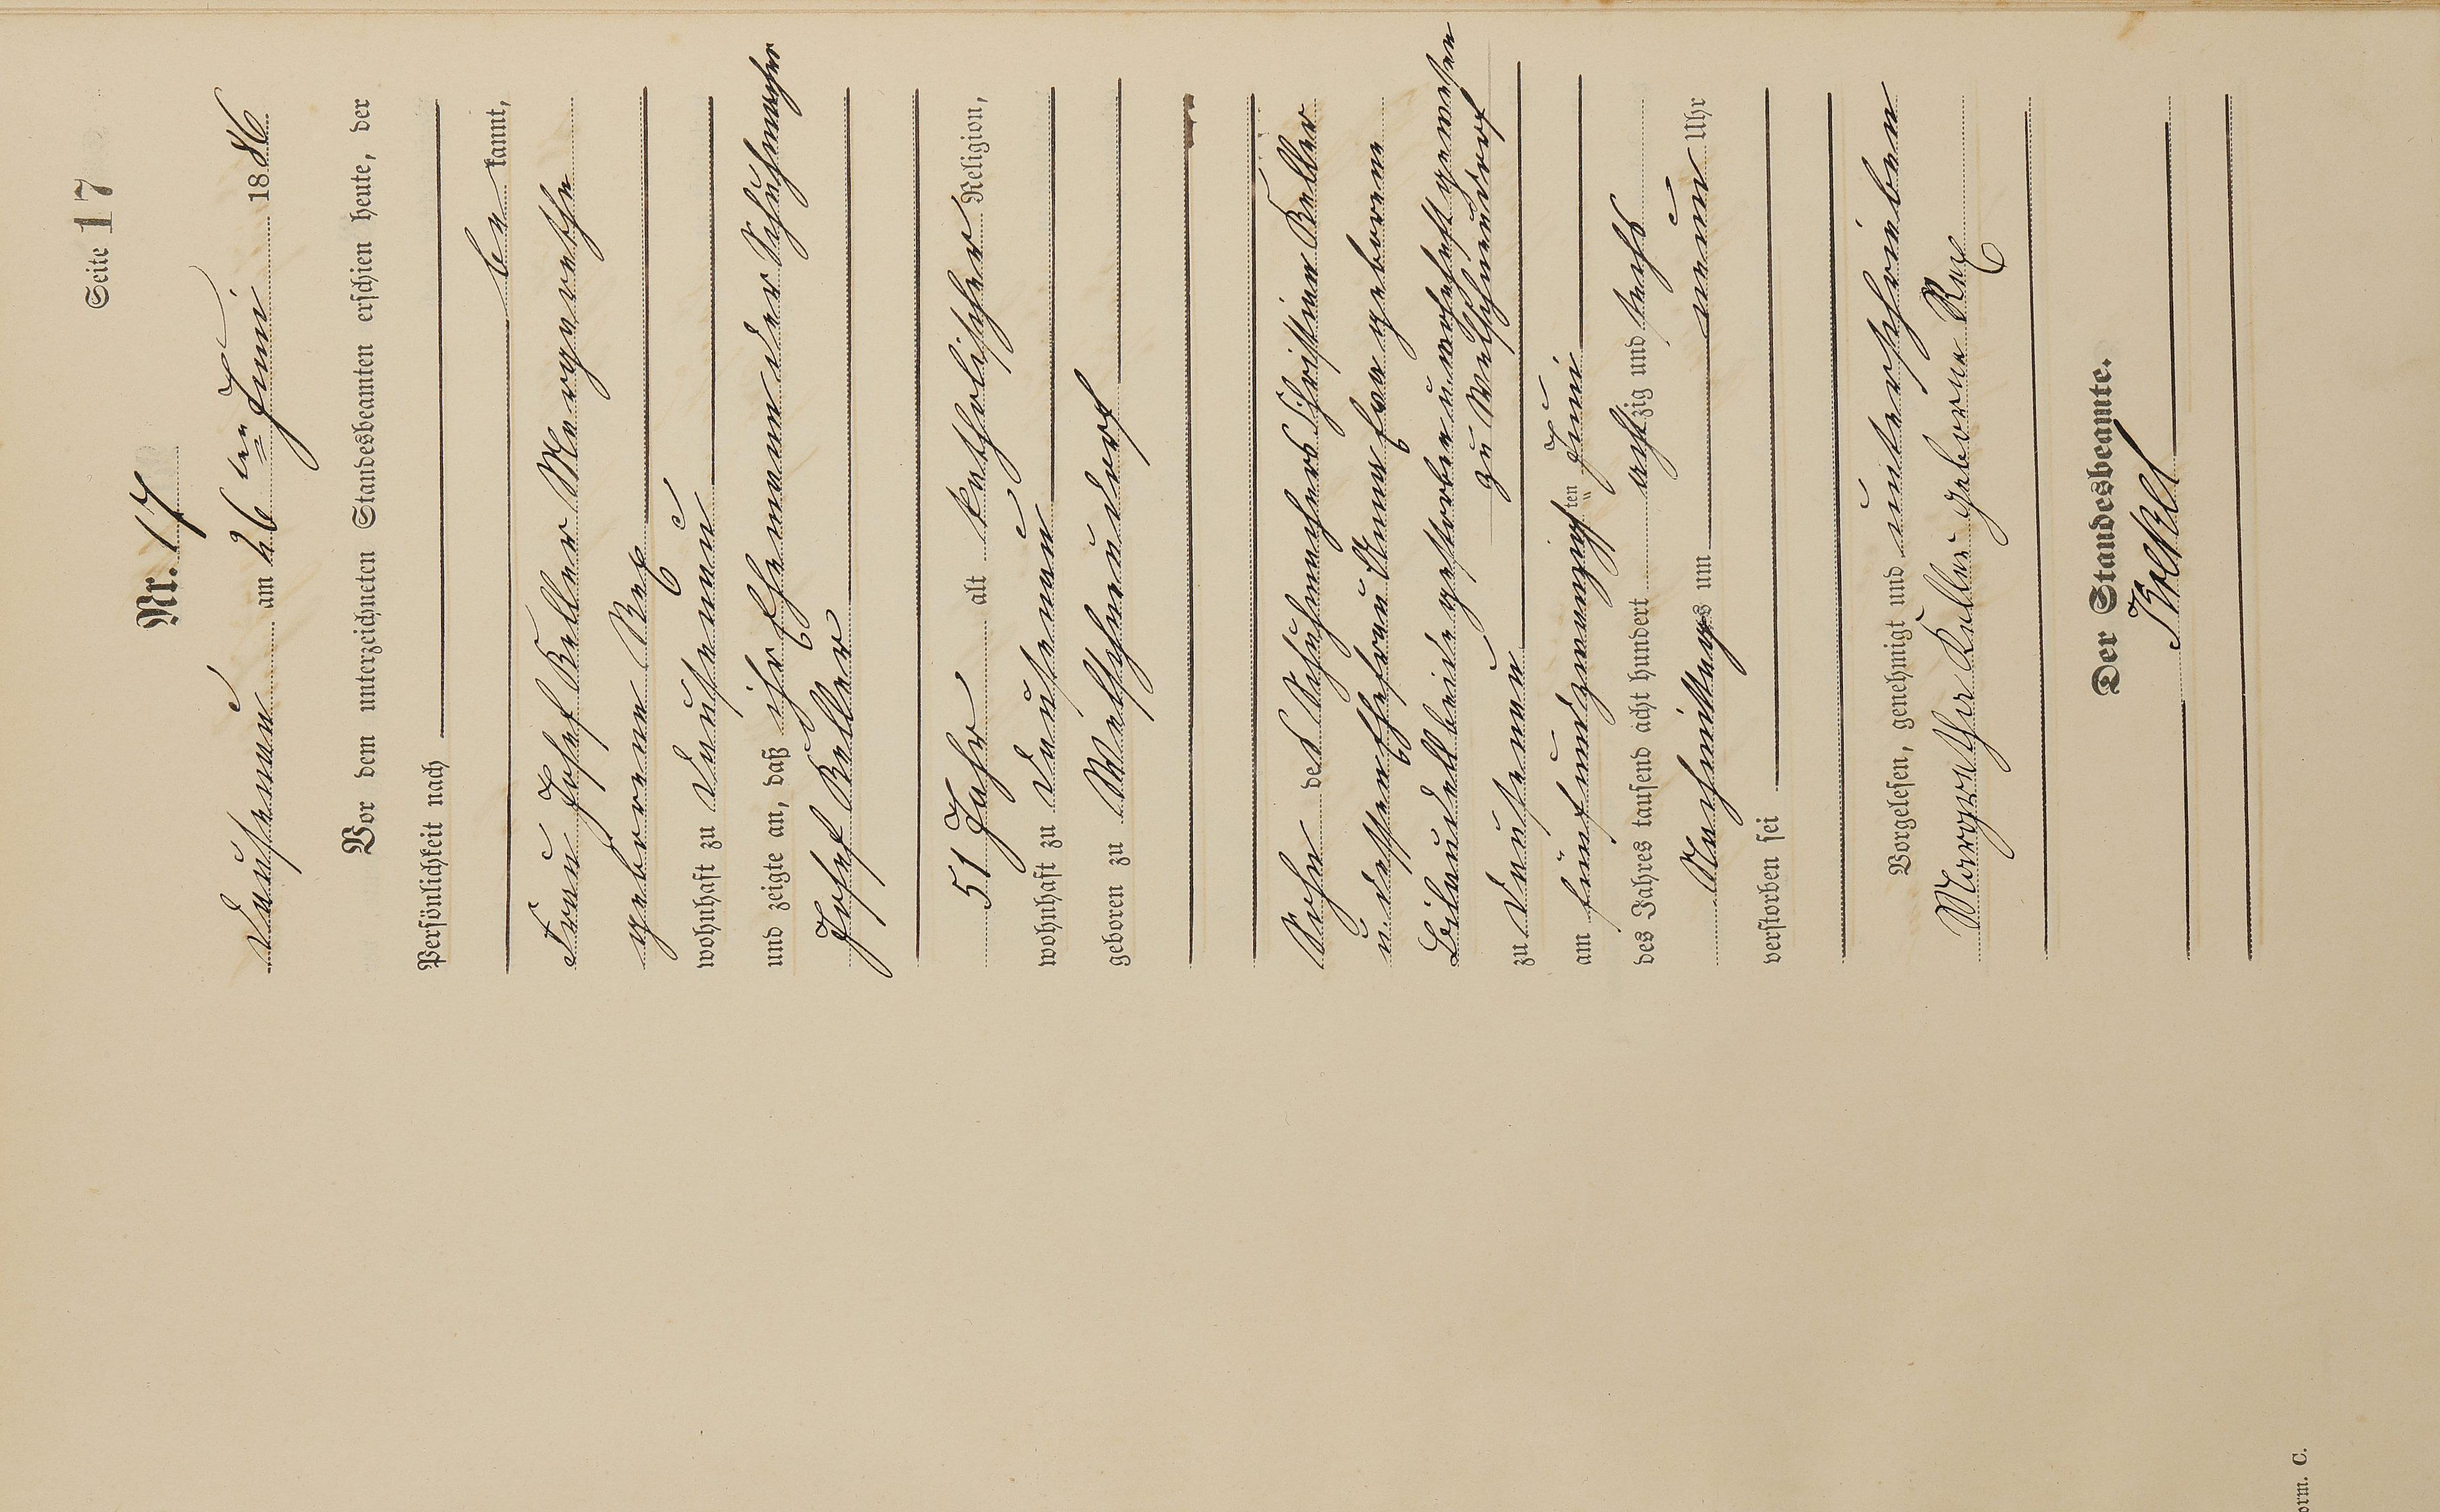 Seite 17
Nr. 17
Dausenau am 26ten Juni 1886
Vor dem unterzeichneten Standesbeamten erschien heute, der
Persönlichkeit nach
be kannt,
Frau Josef Keller Margarethe
geborene
wohnhaft zu Dausenau
und zeigte an, daß ihr Ehemann der Schuhmacher
Josef Keller
51 Jahr alt katholischer Religion,
wohnhaft zu Dausenau
geboren zu Welschneudorf
Sohn des Schuhmachers Christian Keller
u. dessen Ehefrau Anna Eva geborene
beide gestorben u. wohnhaft gewesen
zu Welschneudorf
zu Dausenau
am fünfundzwanzigsten Juni
des Jahres tausend acht hundert achtzig und sechs
Nachmittags um neun Uhr
verstorben sei
Vorgelesen, genehmigt und unterschrieben
Margarethe Keller geborne
Der Standesbeamte.
orm. C.